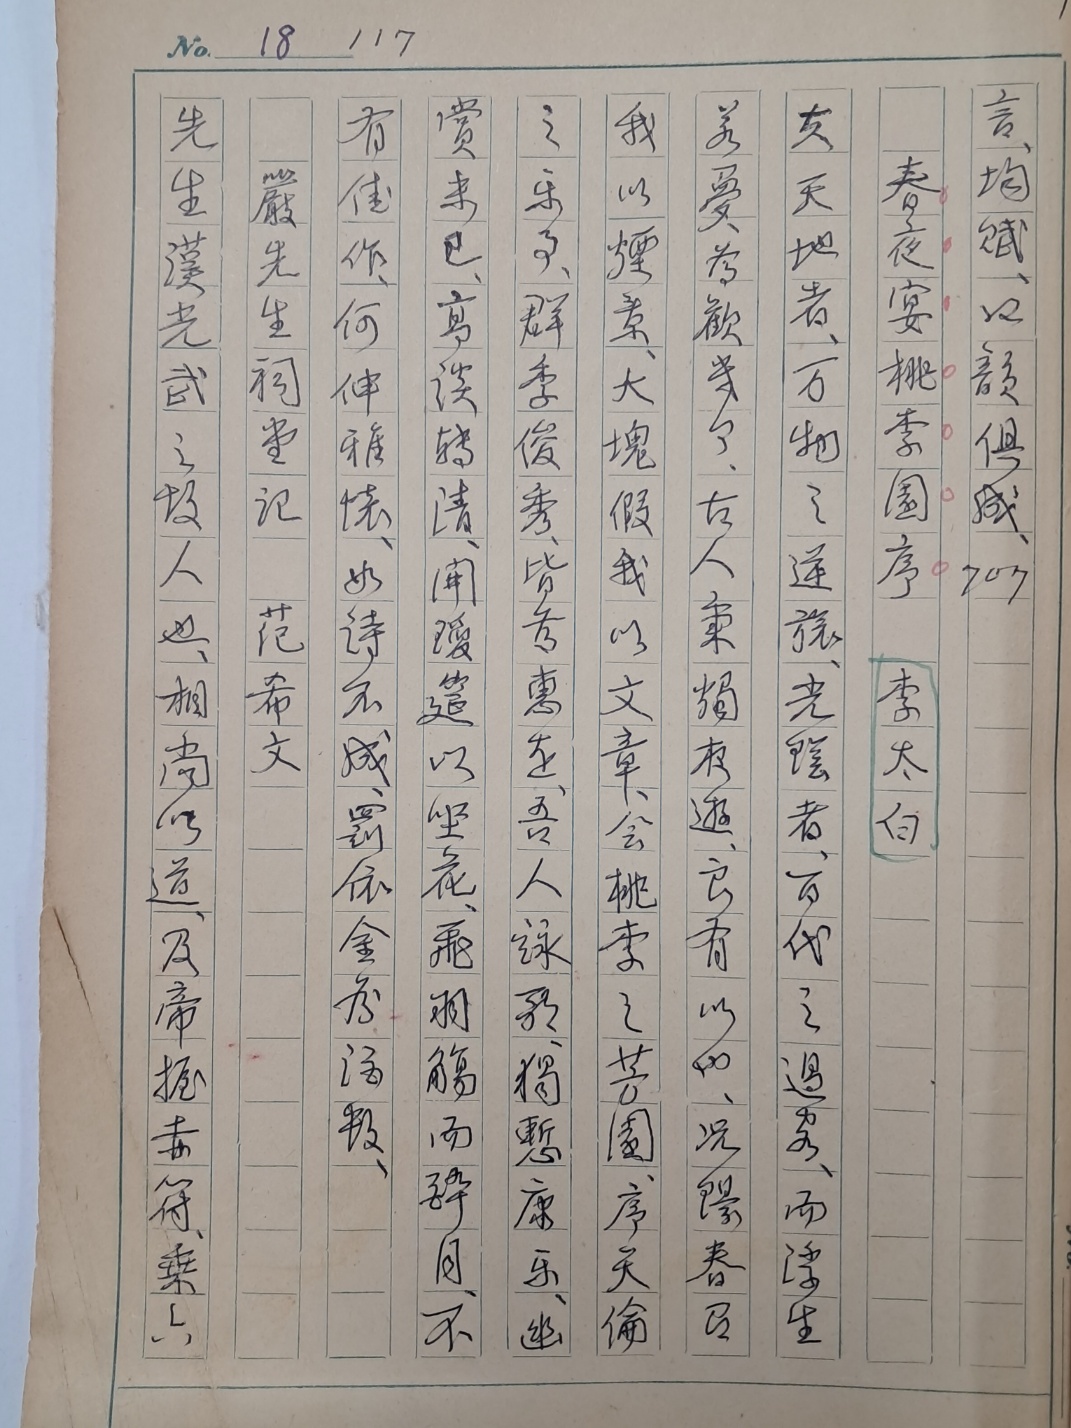 No. 18 117
言、均賦、四韻俱成、707
春夜宴桃李園序 李太白
夫天地者、万物之逆旅、光陰者、百代之過客、而浮生
若夢、為歡幾何、古人秉燭夜遊、良有以也、况陽春召
我以煙景、大塊假我以文章、会桃李之芳園、序天倫
之乐事、群季俊秀、皆為惠連、吾人詠歌、獨慙康乐、幽
赏未已、高談轉清、開瓊筵以坐花、飛羽觴而醉月、不
有佳作、何伸雅懐、如詩不成、罰依金谷酒数、
嚴先生祠堂記 范希文
先生漢光武之故人也、相尚以道、及帝握赤符、乗六